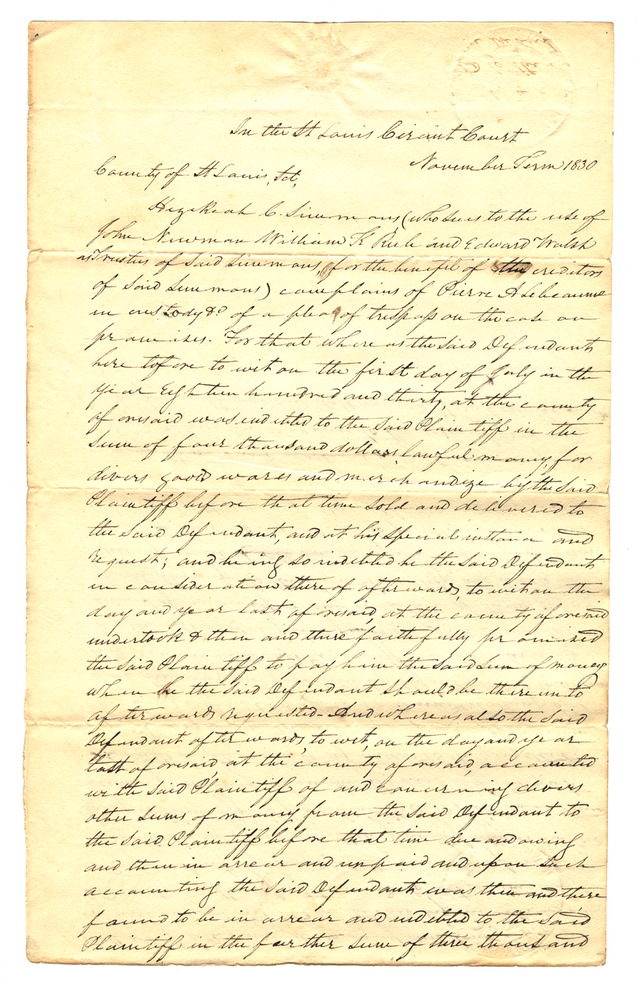 In the St Louis Circuit Court
November Term 1830
County of St Louis, Sct,
Hezekiah C. Simmons, (who sues to the use of
John Newman William K Rule and Edward Walsh
as Trustees of said Simmons, for the benefit of the creditors
of said Simmons) complains of Pierre A Lebeaume
in custody &c of a plea of trespass on the case on
promises. For that where as the said Defendant
here tofore to wit on the first day of July in the
year Eighteen hundred and thirty, at the county
aforesaid was indebted to the said Plaintiff in the
sum of four thousand dollars, lawful money, for
divers goods wares and merchandize by the said
Plaintiff before that time sold and delivered to
the said Defendant, and at his special instance and
request; and being so indebted he the said Defendant
in consideration thereof afterwards, to wit on the
day and year last aforesaid, at the county aforesaid
undertook & then and there faithfully promised
the said Plaintiff to pay him the said sum of money
when he the said Defendant should be there unto
afterwards requested - And where as also the said
Defendant afterwards, to wit, on the day and year
last aforesaid at the county aforesaid, accounted
with said Plaintiff of and concerning divers
other sums of money from the said Defendant to
the said Plaintiff before that time due and owing
and then in arrear and unpaid and upon such
accounting the said Defendant was then and there
found to be in arrear and indebted to the said
Plaintiff in the further sum of three thousand